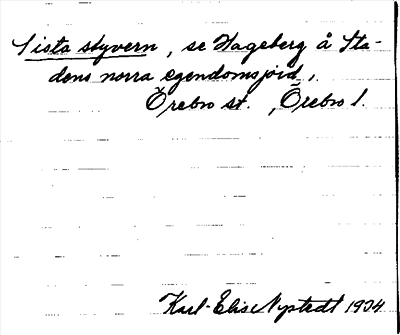 Sista styvern, se Hageberg å Sta-
dens norra egendomsjord,
Örebro st. , Örebro l.
Karl-Elis Nystedt 1934